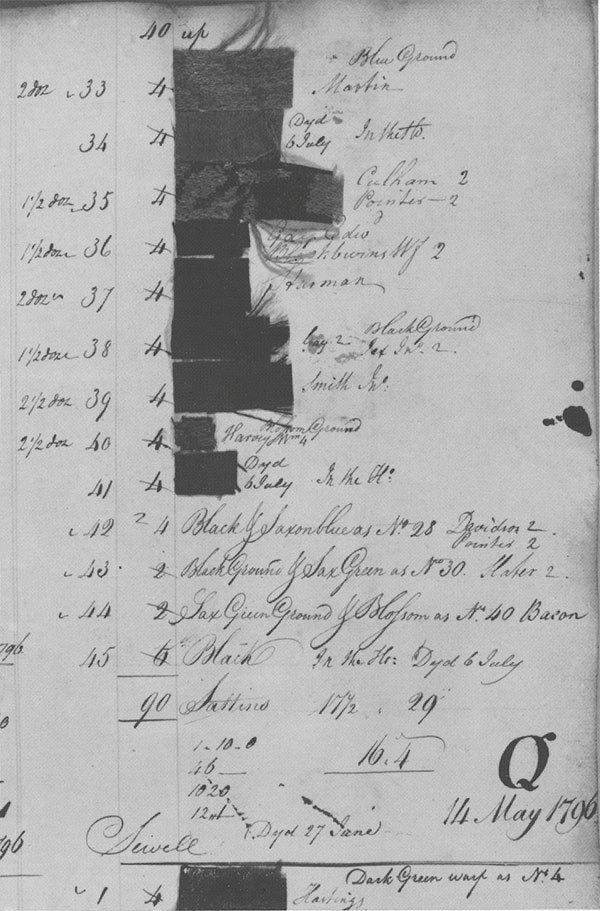 40 up
Blue Ground
2 doz 33 4 Martin
34 4 Dyd 6 July In the Ho.
1 1/2 doz 35 4 Culham 2
Pointer - 2
1 1/2 doz 36 4 2
2 doz 37 4 Harman
Black Ground
1 1/2 doz 38 4 Gay 2 Jex Jnr. 2
2 1/2 doz 39 4 Smith Jn:
Blossom Ground
2 1/2 doz 40 4 Harvey Wm 4
41 4 Dyd 6 July In the Ho.
42 2 4 Black & Saxon blue as No. 28 Davidson 2
Pointer 2
43 2 Black Ground & Sax Green as No 30. Slater 2.
44 2 Sax Green Ground & Blossom as No. 40 Bacon
1796 45 6 Black In the Ho: Dyd 6 July
90 Sattins 17 1/2 29
1-10-0 16.4 Q
46
1020
12 nt 14 May 1796
Sewell Dyd 27 June
96
Dark Green warp as No. 4
1 4 Hastings